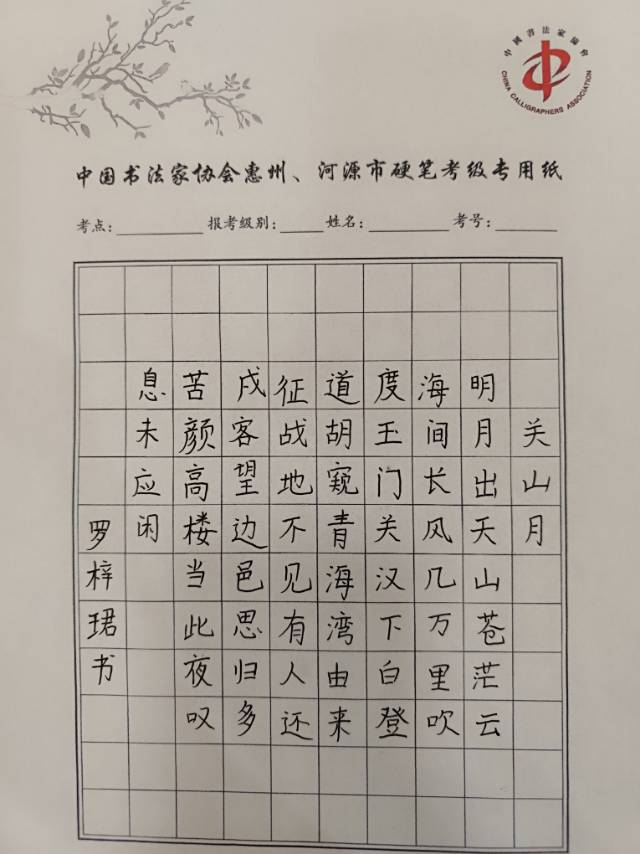 中國書法家協會
CHINA CALLIGRAPHERS ASSOCIATION
中国书法家协会惠州、河源市硬笔考级专用纸
考点: 报考级别: 姓名: 考号:
关山月
明月出天山苍茫云
海间长风几万里吹
度玉门关汉下白登
道胡窥青海湾由来
征战地不见有人还
戍客望边邑思归多
苦颜高楼当此夜叹
息未应闲
罗梓珺书